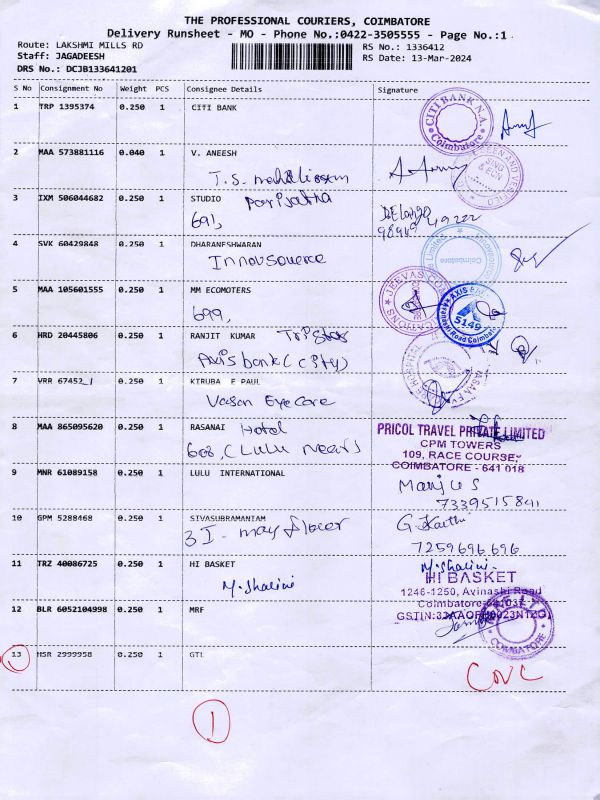 THE PROFESSIONAL COURIERS, COIMBATORE
Delivery Runsheet - MO - Phone No.:0422-3505555 - Page No.:1
Route: LAKSHMI MILLS RD
Staff: JAGADEESH
DRS No.: DCJB133641201
RS No.: 1336412
RS Date: 13-Mar-2024
S No Consignment No Weight PCS Consignee Details Signature
1 TRP 1395374 0.250 1 CITI BANK
CITI BANK N.A.
Coimbatore
2 MAA 573881116 0.040 1 V. ANEESH
T.S.
3 IXM 506044682 0.250 1 STUDIO
691,
4 SVK 60429848 0.250 1 DHARANESHWARAN
Innovsource
Coimbatore
5 MAA 105601555 0.250 1 MM ECOMOTERS
699,
AXIS
5149
6 HRD 20445806 0.250 1 RANJIT KUMAR Tristar
Axis bank (city)
7 VRR 67452_1 0.250 1 KIRUBA E PAUL
Vasan Eye Care
8 MAA 865095620 0.250 1 RASANAI Hotel
608, (Lulu near)
PRICOL TRAVEL PRIVATE LIMITED
CPM TOWERS
109, RACE COURSE,
COIMBATORE - 641 018
9 MNR 61089158 0.250 1 LULU INTERNATIONAL
Manju S
7339515841
10 GPM 5288468 0.250 1 SIVASUBRAMANIAM
3 I - may flower
G. Karthi
7259696696
11 TRZ 40086725 0.250 1 HI BASKET
M. Shalini
M. Shalini
HI BASKET
1246-1250, Avinashi Road
Coimbatore-641037
12 BLR 6052104998 0.250 1 MRF
COIMBATORE
13 HSR 2999958 0.250 1 GTL
CNC
1